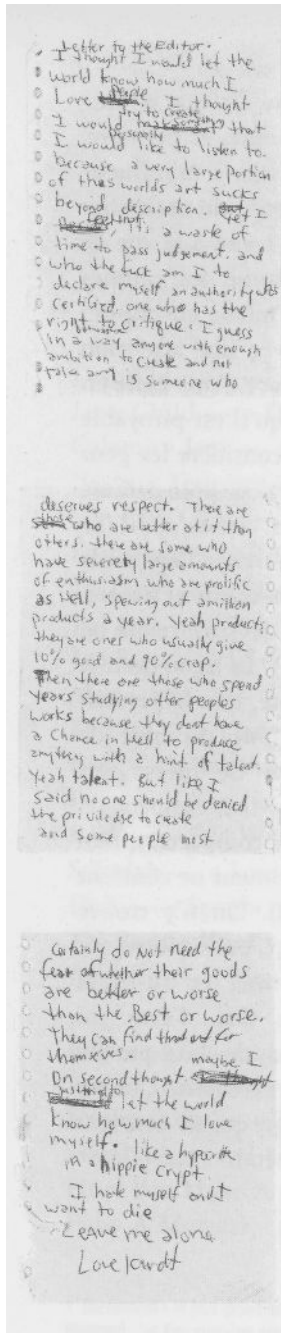 Letter to the Editor.
I thought I would let the
world know how much I
Love People. I thought
try to create
I would make something that
personally
I would like to listen to
because a very large portion
of this worlds art sucks
beyond description. but yet I
feel that, its a waste of
time to pass judgement. and
who the fuck am I to
declare myself an authority
certified, one who has the
right to critique. I guess
in a way anyone with enough
ambition to create and not
take away is someone who
deserves respect. There are
those who are better at it than
others. there are some who
have severely large amounts
of enthusiasm who are prolific
as Hell, spewing out a million
products a year. yeah products
they are ones who usually give
10% good and 90% crap.
Then there are those who spend
years studying other peoples
works because they dont have
a chance in Hell to produce
anything with a hint of talent.
yeah talent. But like I
said no one should be denied
the priviledge to create
and some people most
certainly do Not need the
fear of whether their goods
are better or worse
than the Best or worse.
They can find that out for
themselves.
maybe I
On second thought
just need to let the world
know how much I love
myself. like a hypocrite
in a hippie crypt.
I hate myself and I
want to die
Leave me alone
Love Kurdt